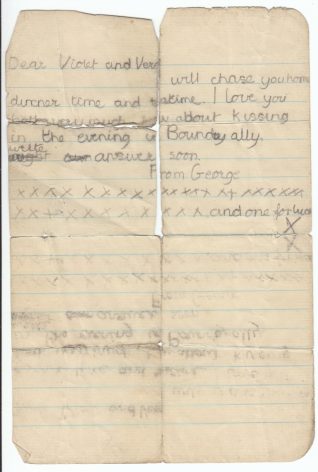 Dear Violet and Vera
will chase you home
dinner time and teatime. I love you
both very much how about kissing
in the evening in Boundy ally.
write
answer soon.
From George
x x x x x x x x x x x x x x x x x x
x x x x x x x x x x x x and one for luck
X